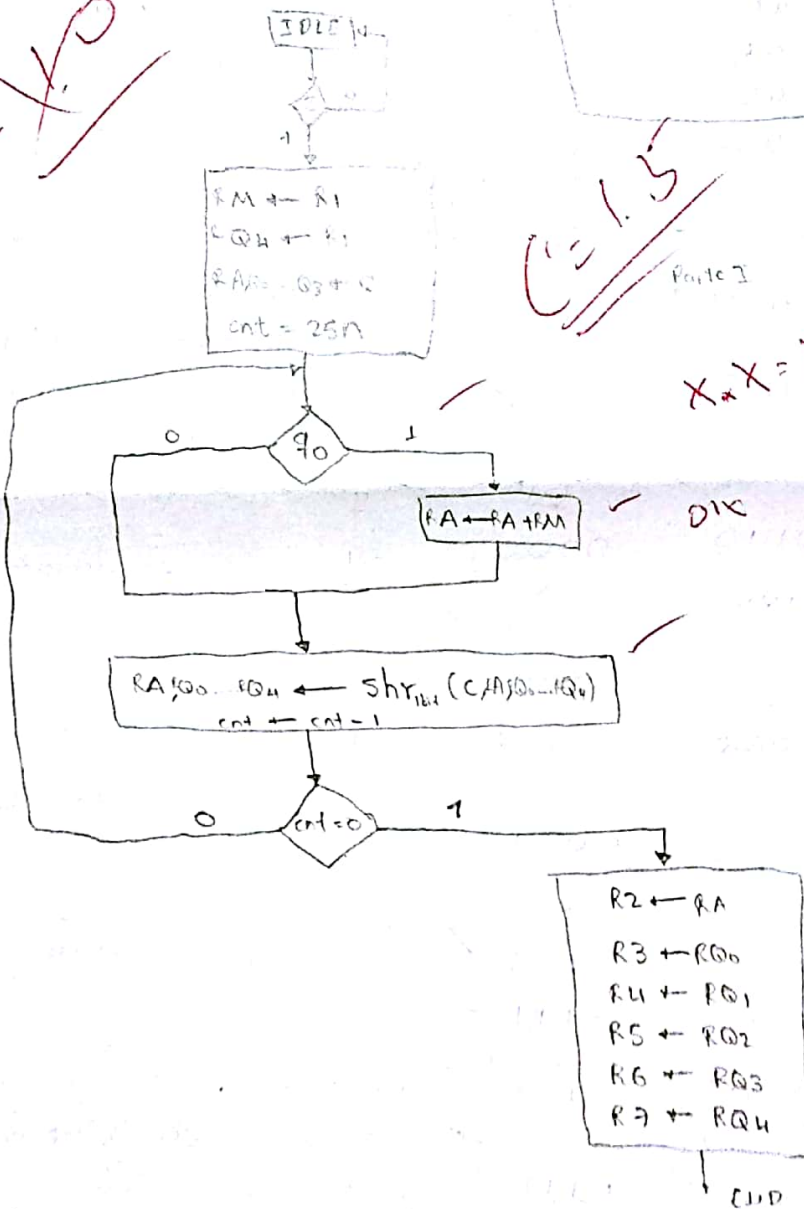 IDLE
1
RM ← R1
Q4 ← R1
cnt = 25n
C = 1.5
Parte I
X * X =
0
q0
1
RA ← RA + RM
OK
RA,Q0...RQ4 ← shr1bit (C,RA,Q0...RQ4)
cnt ← cnt - 1
0
cnt = 0
1
R2 ← RA
R3 ← RQ0
R4 ← RQ1
R5 ← RQ2
R6 ← RQ3
R7 ← RQ4